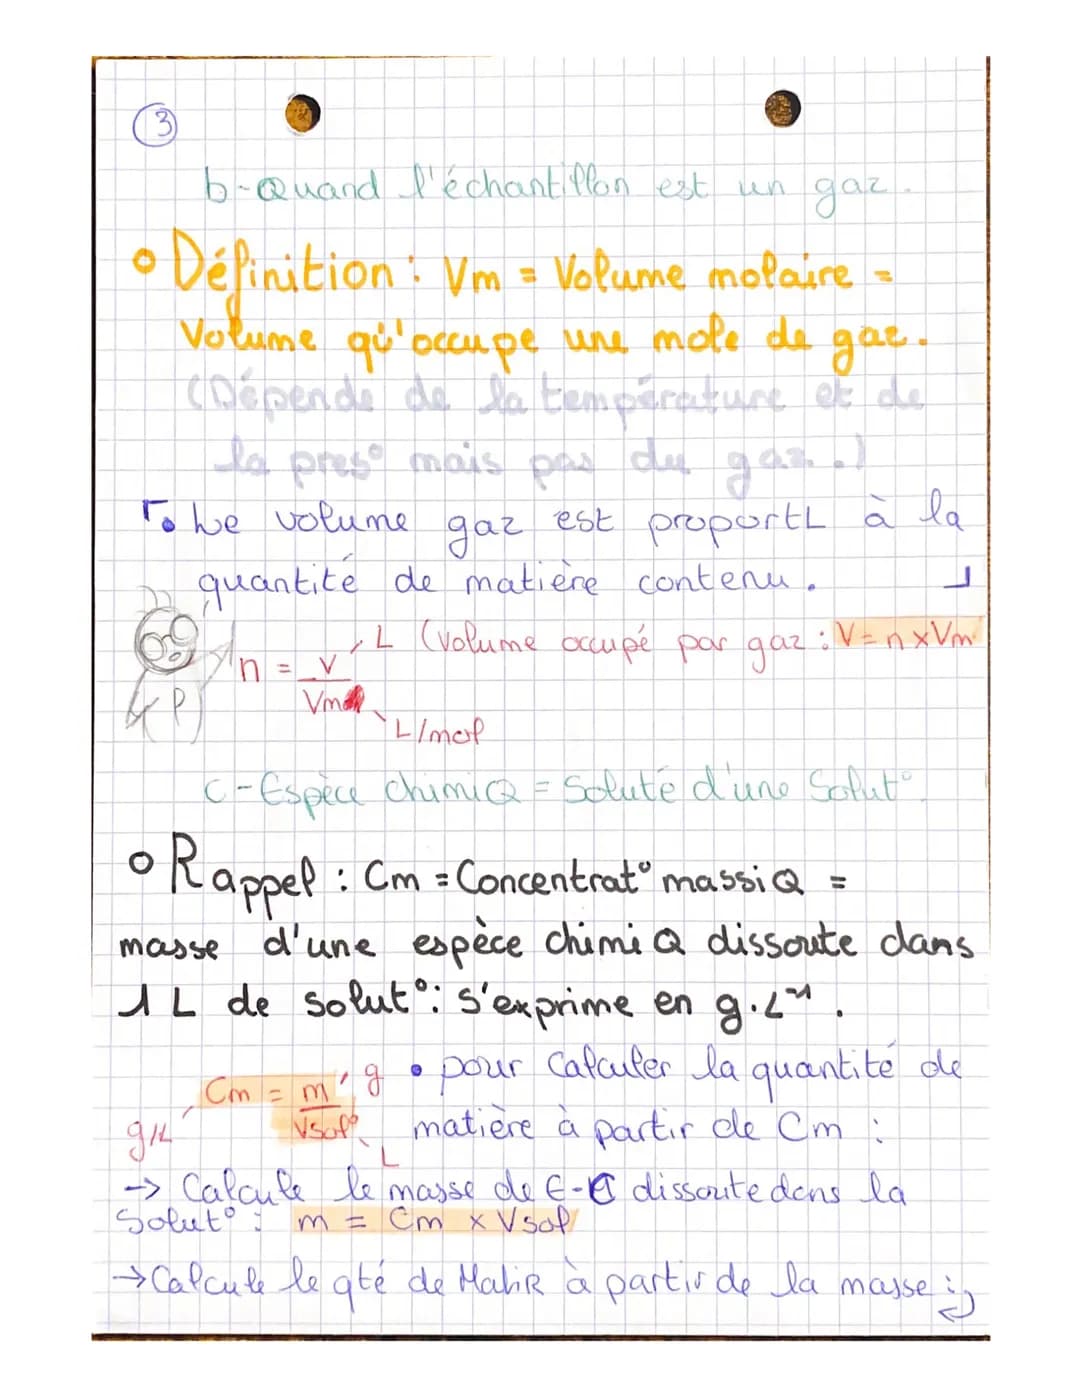 3
b-Quand l'échantillon est un gaz.
Définition : Vm = Volume molaire =
Volume qu'occupe une mole de gaz.
(Dépends de la température et de
la pres° mais pas du gaz..)
Le volume gaz est proportL à la
quantité de matière contenu.
L (volume occupé par gaz : V = n x Vm
n = V
Vm
L/mol
P
C-Espèce chimiQ = Soluté d'une Solut°.
Rappel : Cm = Concentrat° massiQ =
masse d'une espèce chimiQ dissoute dans
1 L de solut° : s'exprime en g.L⁻¹.
Cm = m g • pour Calculer la quantité de
g/L Vsol° L matière à partir de Cm :
-> Calcule le masse de E-C dissoute dans la
Solut° : m = Cm x Vsol
-> Calcule le qté de MatiR à partir de la masse :